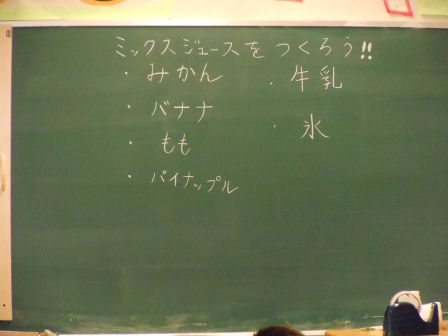 ミックスジュースをつくろう!!
・みかん
・バナナ
・もも
・パイナップル
・牛乳
・氷